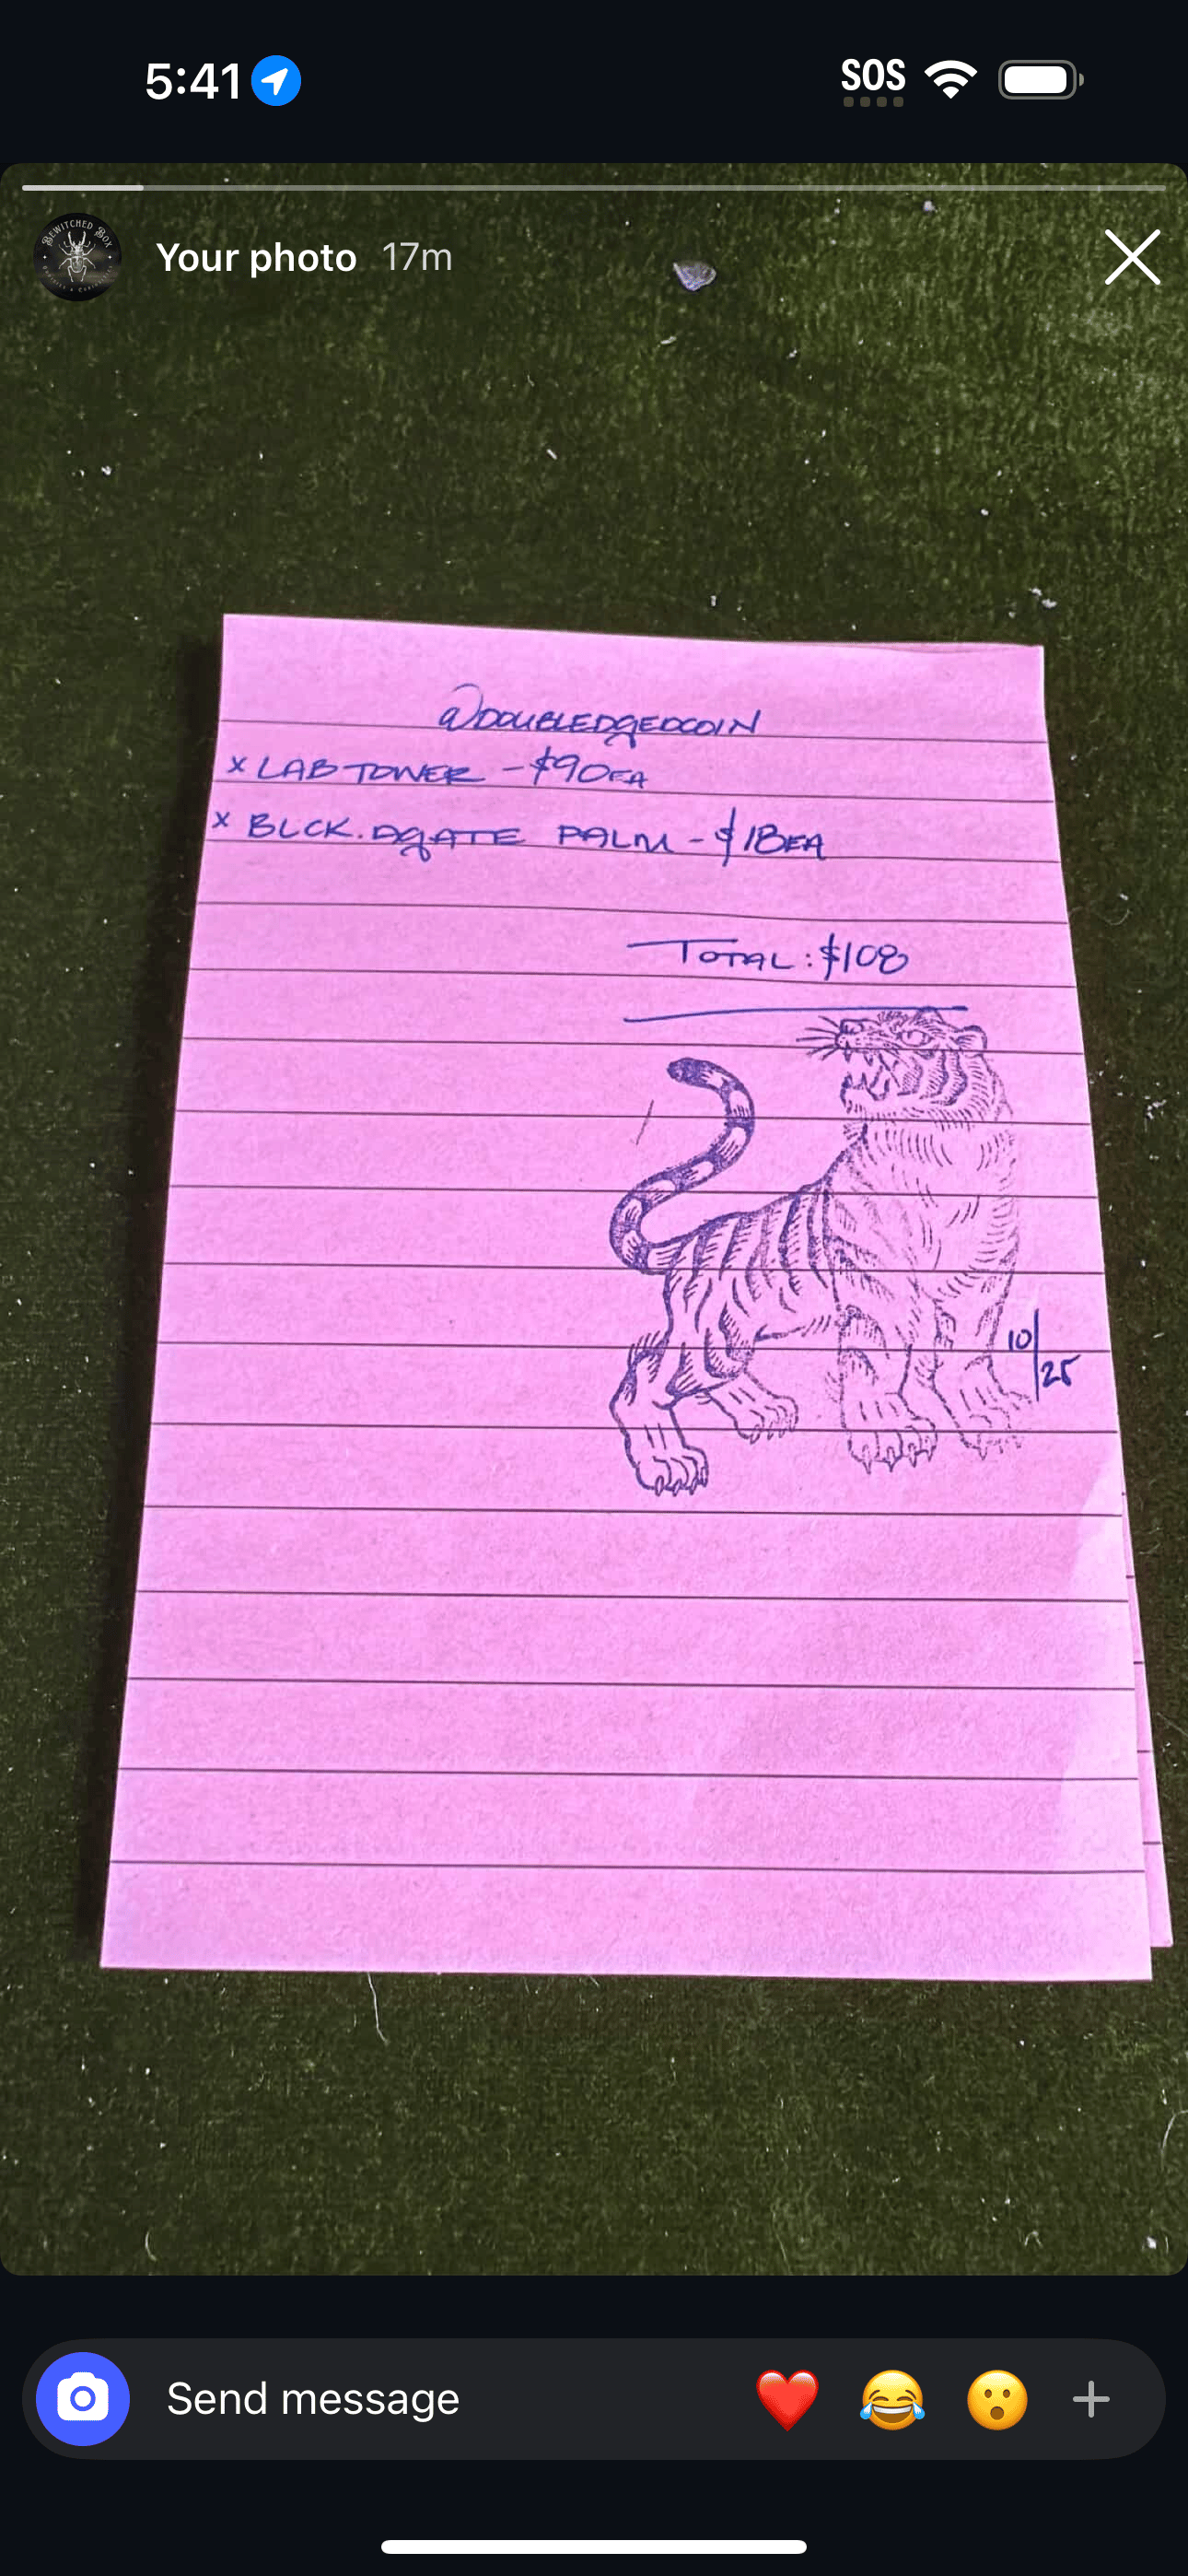 5:41
SOS
BEWITCHED BOX
Your photo 17m
@DOUBLEDGEDCOIN
x LAB TOWER - $90EA
x BLCK. AGATE PALM - $18EA
TOTAL: $108
10/25
Send message